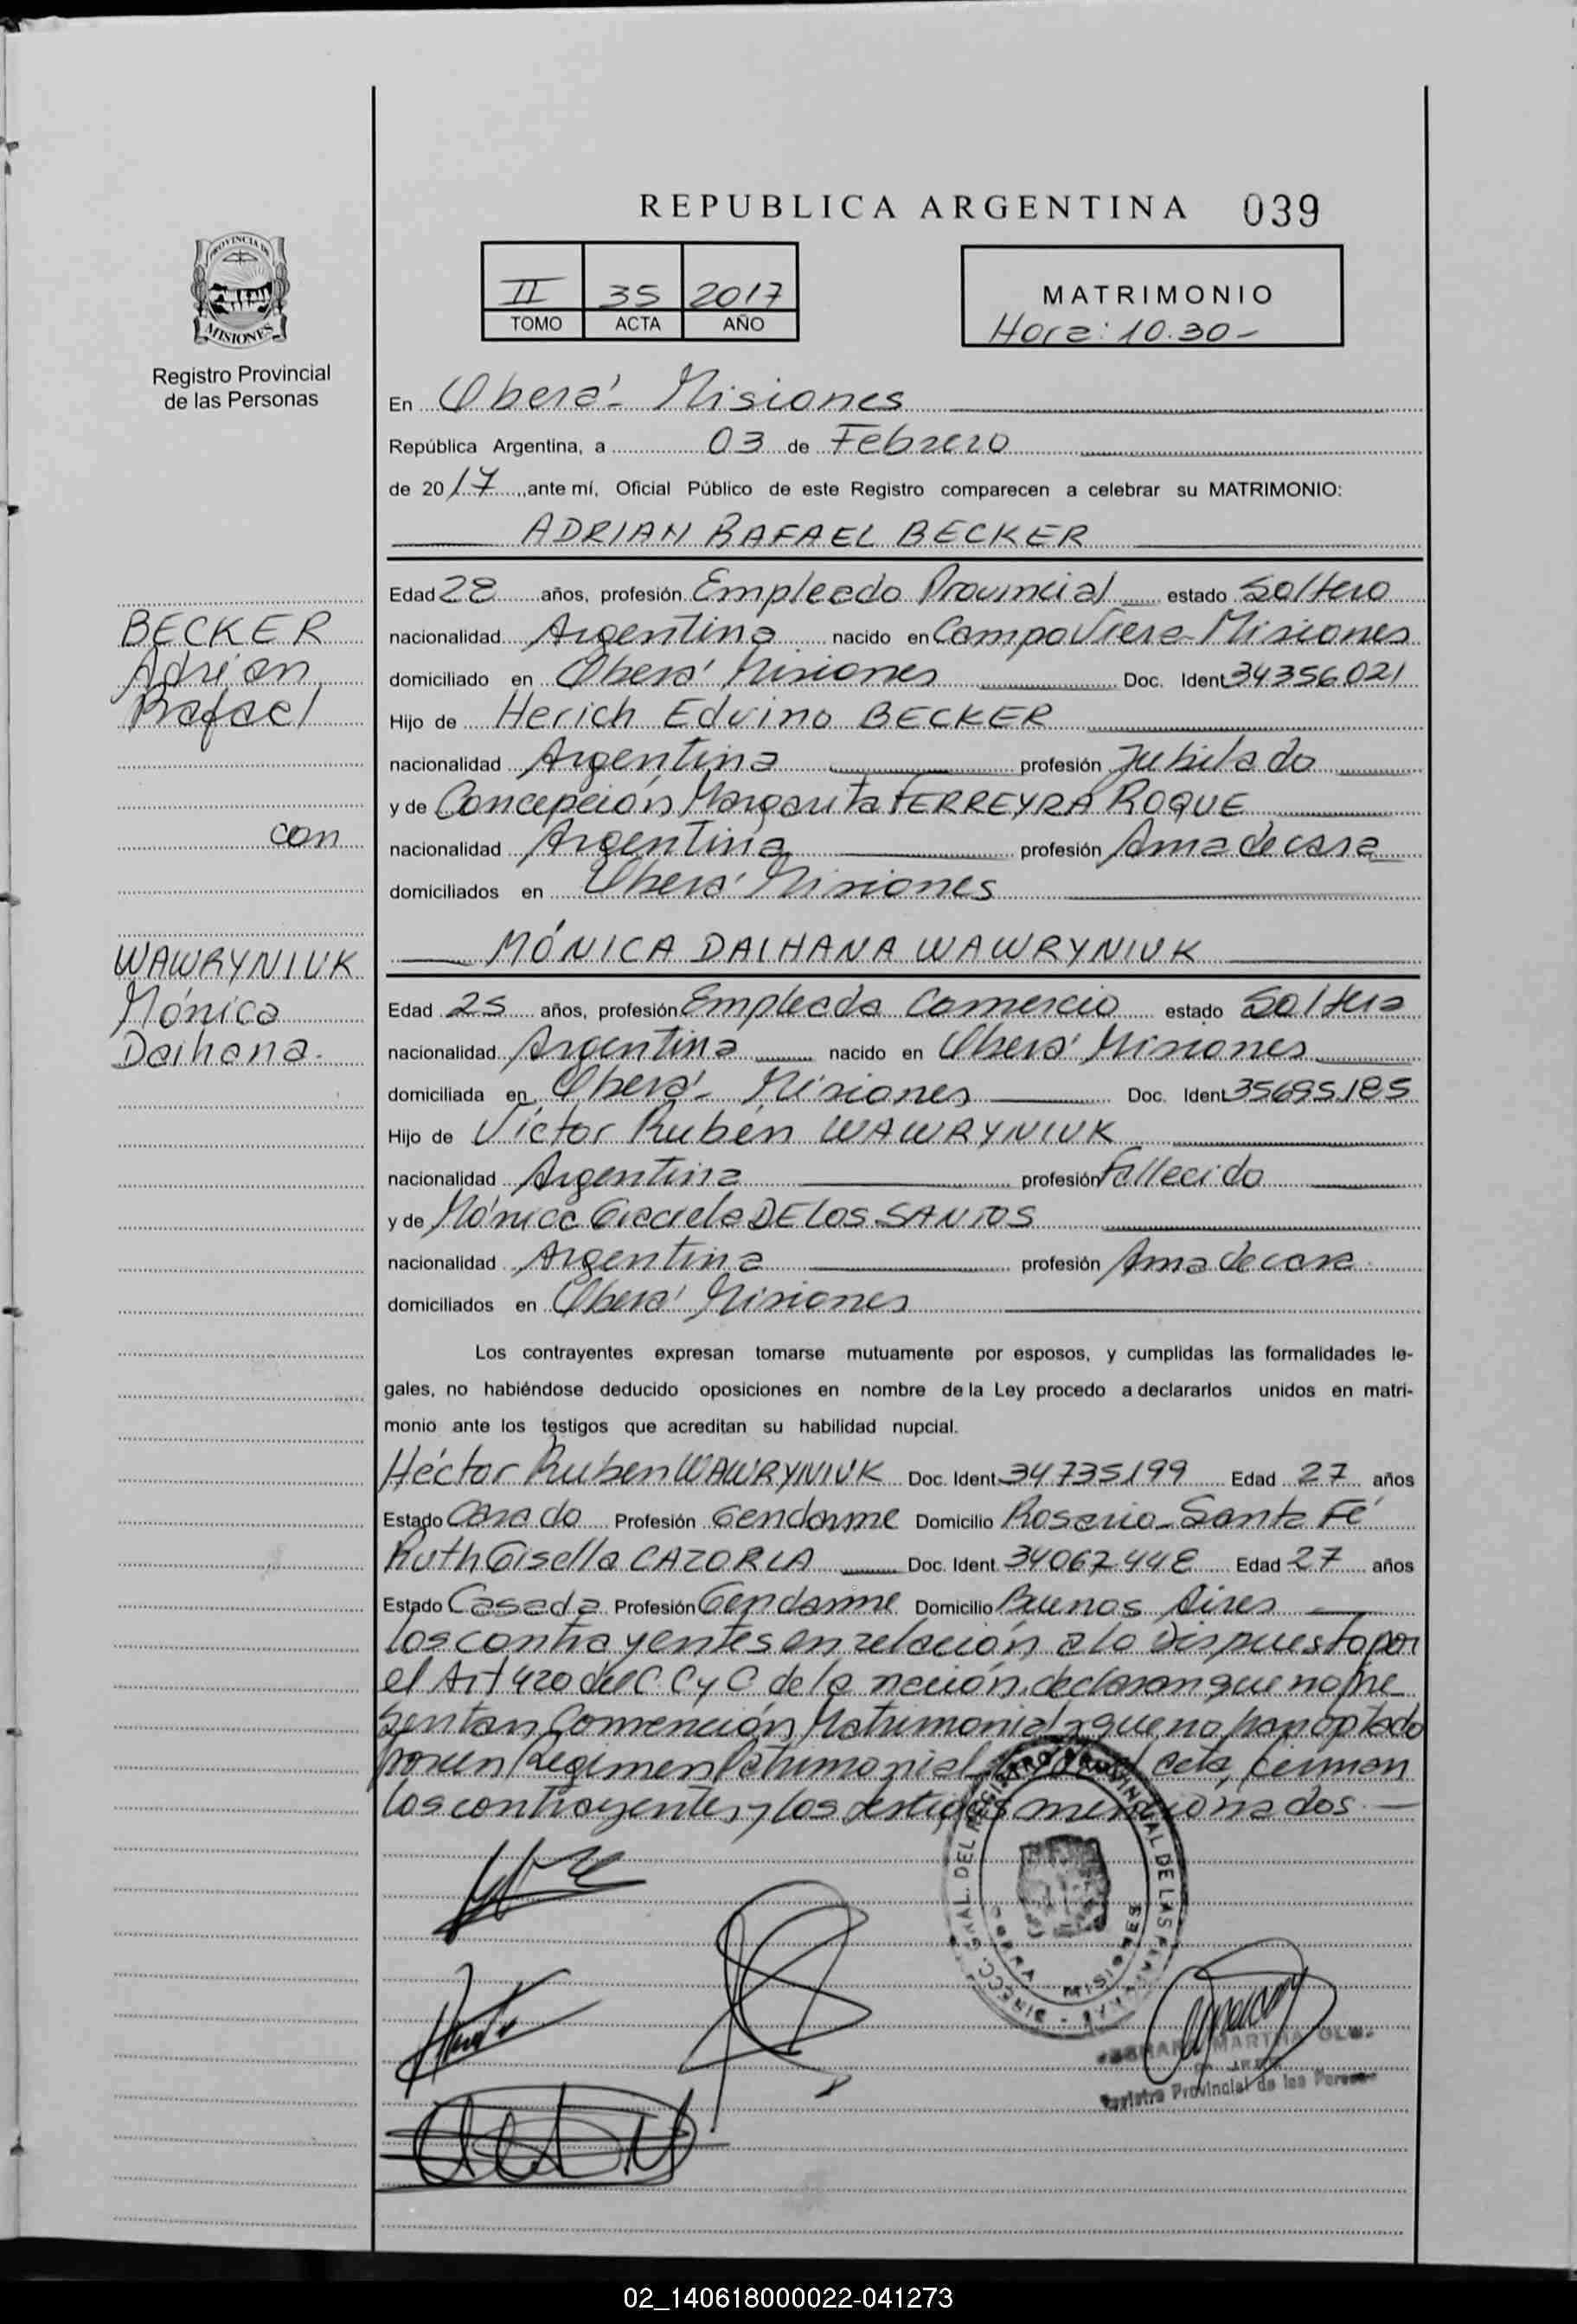 REPUBLICA ARGENTINA 039
PROVINCIA DE
MISIONES
Registro Provincial
de las Personas
II 35 2017
TOMO ACTA AÑO
MATRIMONIO
Hora: 10.30-
En Oberá - Misiones
República Argentina, a 03 de Febrero
de 2017, ante mí, Oficial Público de este Registro comparecen a celebrar su MATRIMONIO:
ADRIAN RAFAEL BECKER
Edad 28 años, profesión Empleado Provincial estado Soltero
BECKER
nacionalidad Argentina nacido en Campo Viera - Misiones
Adrian
domiciliado en Oberá Misiones Doc. Ident 34356021
Rafael
Hijo de Herich Edvino BECKER
nacionalidad Argentina profesión Jubilado
y de Concepción Margarita FERREYRA ROQUE
con
nacionalidad Argentina profesión Ama de casa
domiciliados en Oberá Misiones
MÓNICA DAIHANA WAWRYNIUK
WAWRYNIUK
Mónica
Daihana.
Edad 25 años, profesión Empleada Comercio estado Soltera
nacionalidad Argentina nacido en Oberá Misiones
domiciliada en Oberá - Misiones Doc. Ident 35695.185
Hijo de Víctor Rubén WAWRYNIUK
nacionalidad Argentina profesión Fallecido
y de Mónica Graciela DE LOS SANTOS
nacionalidad Argentina profesión Ama de casa
domiciliados en Oberá Misiones
Los contrayentes expresan tomarse mutuamente por esposos, y cumplidas las formalidades le-
gales, no habiéndose deducido oposiciones en nombre de la Ley procedo a declararlos unidos en matri-
monio ante los testigos que acreditan su habilidad nupcial.
Héctor Ruben WAWRYNIUK Doc. Ident 34.735199 Edad 27 años
Estado Casado Profesión Gendarme Domicilio Rosario - Santa Fé
Ruth Gisella CAZORLA Doc. Ident. 34067448 Edad 27 años
Estado Casada Profesión Gendarme Domicilio Buenos Aires
los contrayentes en relación a lo Dispuesto por
el Art 420 del C. C y C de la nación, declaran que no pre
sentan Convención Matrimonial y que no han optado
por un Regimen Patrimonial acta, firman
los contrayentes y los testigos mencionados.
DIRECC. GRAL. DEL REGISTRO PROVINCIAL DE LAS
MISIONES
MARTHA
Registro Provincial de las Personas
02_140618000022-041273